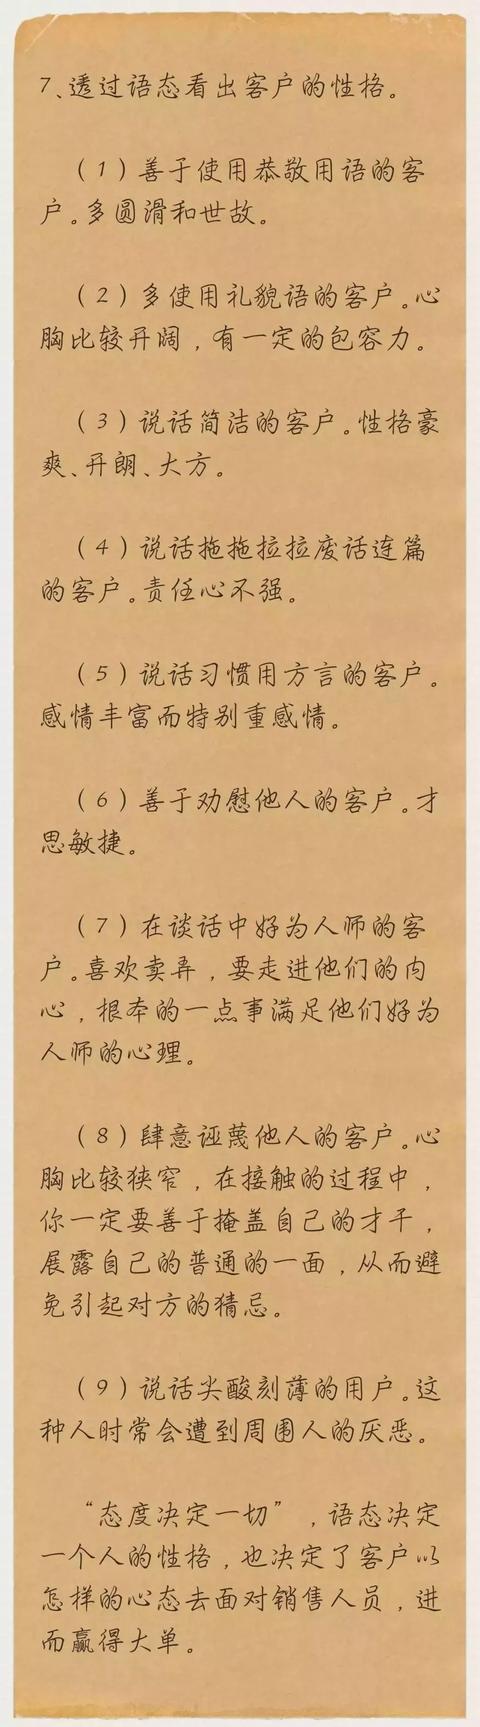 7、透过语态看出客户的性格。
（1）善于使用恭敬用语的客
户。多圆滑和世故。
（2）多使用礼貌语的客户。心
胸比较开阔，有一定的包容力。
（3）说话简洁的客户。性格豪
爽、开朗、大方。
（4）说话拖拖拉拉废话连篇
的客户。责任心不强。
（5）说话习惯用方言的客户。
感情丰富而特别重感情。
（6）善于劝慰他人的客户。才
思敏捷。
（7）在谈话中好为人师的客
户。喜欢卖弄，要走进他们的内
心，根本的一点事满足他们好为
人师的心理。
（8）肆意诬蔑他人的客户。心
胸比较狭窄，在接触的过程中，
你一定要善于掩盖自己的才干，
展露自己的普通的一面，从而避
免引起对方的猜忌。
（9）说话尖酸刻薄的用户。这
种人时常会遭到周围人的厌恶。
“态度决定一切”，语态决定
一个人的性格，也决定了客户以
怎样的心态去面对销售人员，进
而赢得大单。